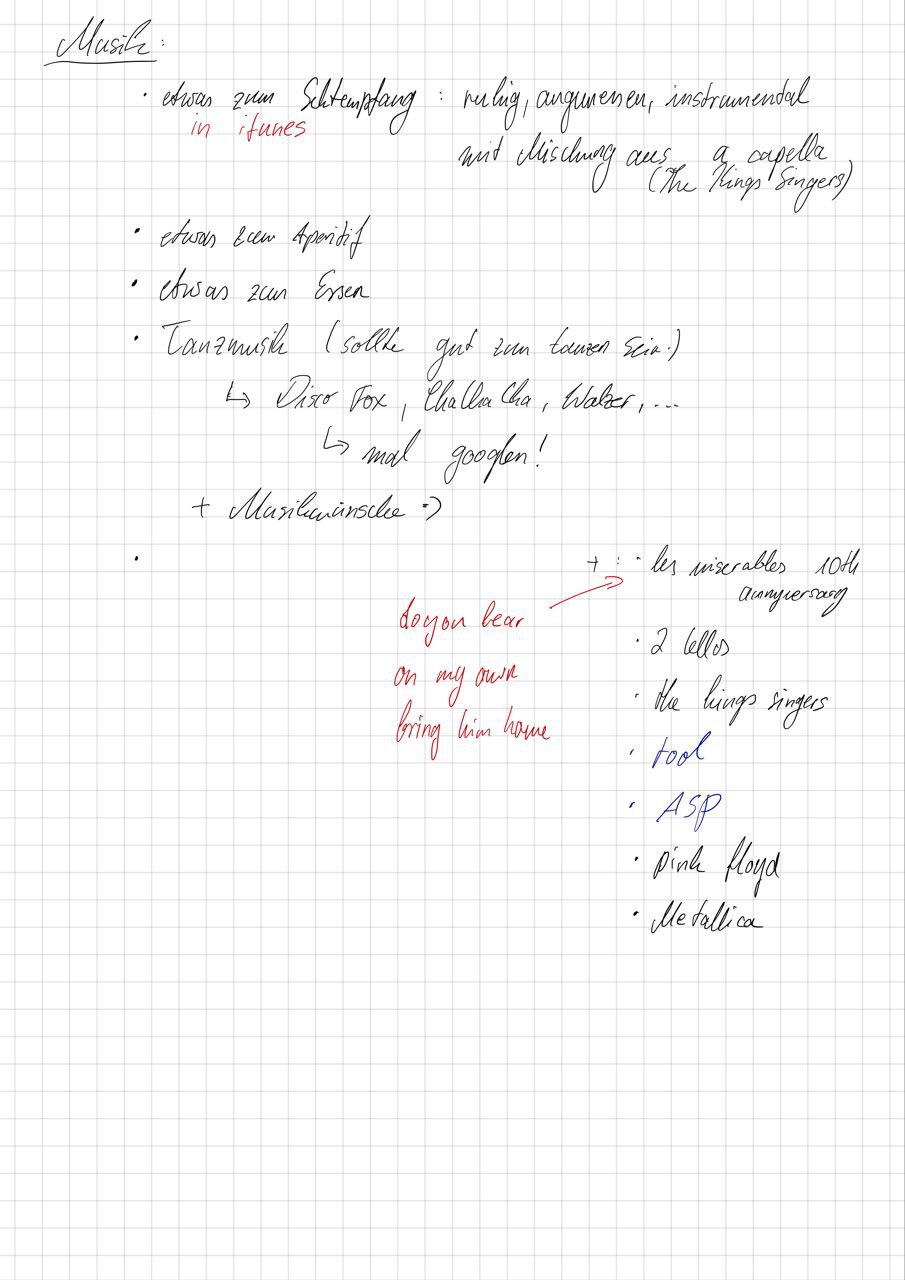 Musik:
• etwas zum Sektempfang : ruhig, angemessen, instrumental
in itunes
mit Mischung aus a capella
(The Kings Singers)
• etwas zum Aperitif
• etwas zum Essen
• Tanzmusik (sollte gut zum tanzen sein.)
↳ Disco Fox, ChaChaCha, Walzer, ...
↳ mal googlen!
+ Musikwünsche :)
•
+ : • les miserables 10th
annyversary
do you hear
on my own
bring him home
• 2 Cellos
• the kings singers
• tool
• ASP
• pink floyd
• Metallica